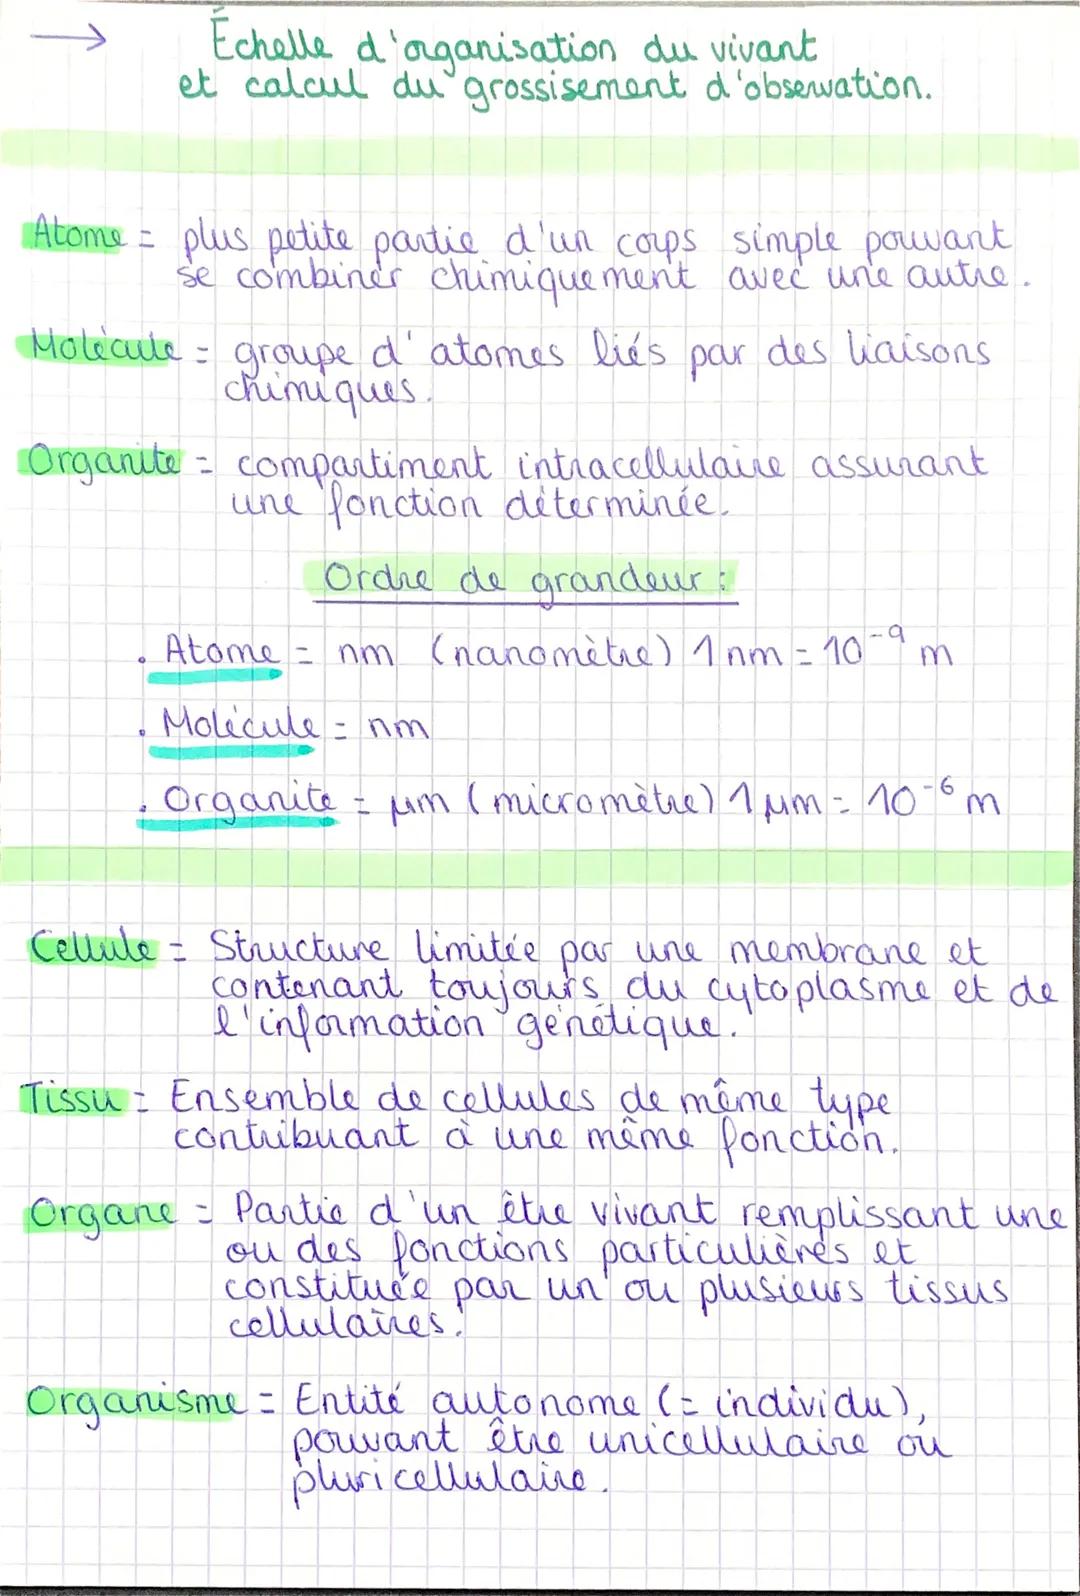 → Échelle d'organisation du vivant
et calcul du grossisement d'observation.
Atome = plus petite partie d'un corps simple pouvant
se combiner chimiquement avec une autre.
Molécule = groupe d'atomes liés par des liaisons
chimiques.
Organite = compartiment intracellulaire assurant
une fonction déterminée.
Ordre de grandeur :
. Atome = nm (nanomètre) 1 nm = 10⁻⁹ m
. Molécule = nm
. Organite = µm (micromètre) 1 µm = 10⁻⁶ m
Cellule = Structure limitée par une membrane et
contenant toujours du cytoplasme et de
l'information génétique.
Tissu = Ensemble de cellules de même type
contribuant à une même fonction.
Organe = Partie d'un être vivant remplissant une
ou des fonctions particulières et
constituée par un ou plusieurs tissus
cellulaires.
Organisme = Entité autonome (= individu),
pouvant être unicellulaire ou
pluricellulaire.